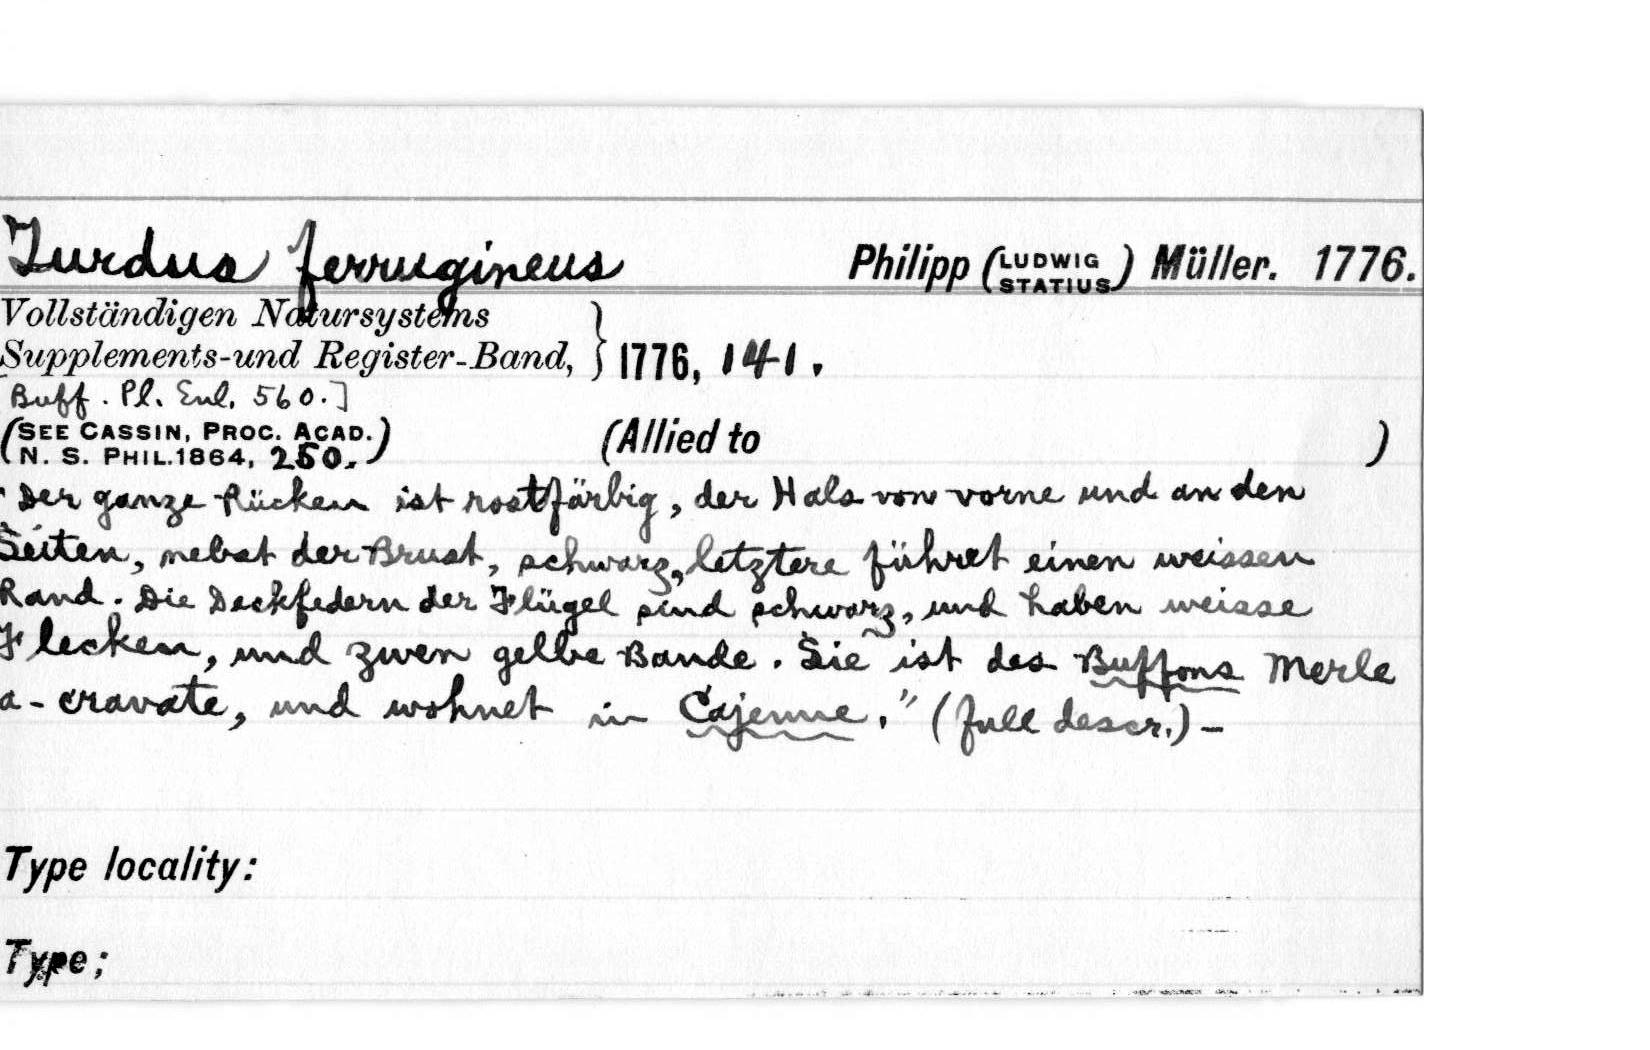 Turdus ferrugineus Philipp (LUDWIG STATIUS) Müller. 1776.
Vollständigen Natursystems
Supplements-und Register-Band, } 1776, 141.
[Buff. Pl. Enl. 560.]
(SEE CASSIN, PROC. ACAD. (Allied to )
N. S. PHIL. 1864, 250.)
"Der ganze Rücken ist rostfärbig, der Hals von vorne und an den
Seiten, nebst der Brust, schwarz, letztere führet einen weissen
Rand. Die Deckfedern der Flügel sind schwarz, und haben weisse
Flecken, und zwen gelbe Bande. Sie ist des Buffons Merle
a-cravate, und wohnet in Cajenne." (full descr.) –
Type locality:
Type;